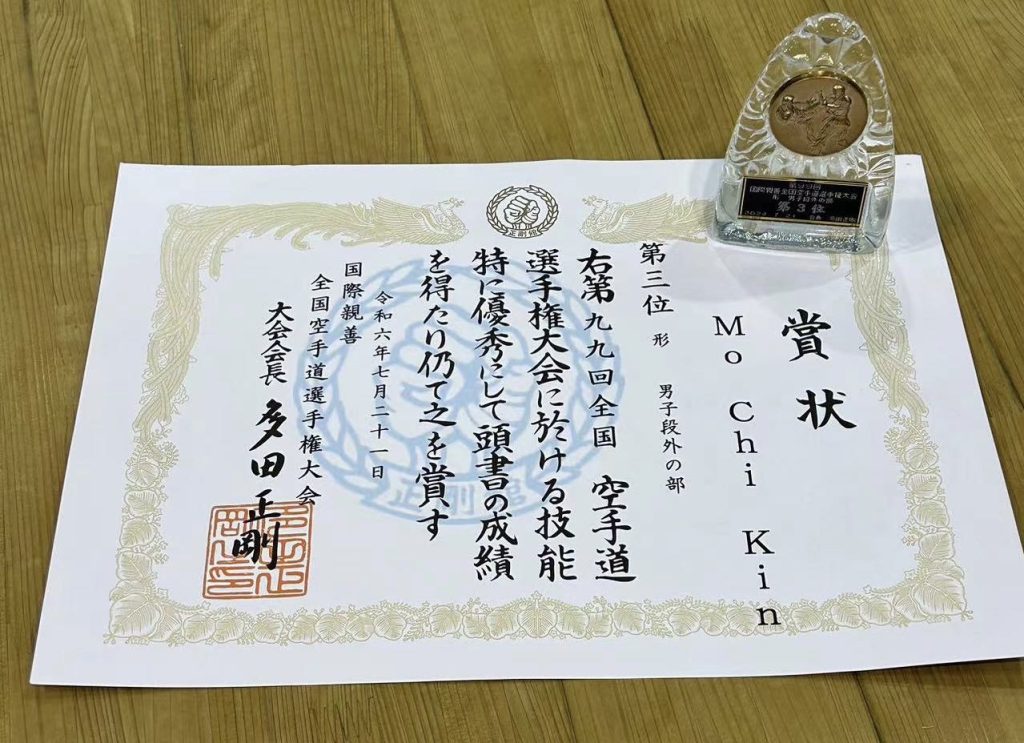 賞状
Mo Chi Kin
第三位 形 男子段外の部
右第九九回全国 空手道
選手権大会に於ける技能
特に優秀にして頭書の成績
を得たり仍て之を賞す
令和六年七月二十一日
国際親善
全国空手道選手権大会
大会会長 多田正剛
正剛館
正剛館
第99回
国際親善全国空手道選手権大会
形 男子段外の部
第3位
2024.7.21